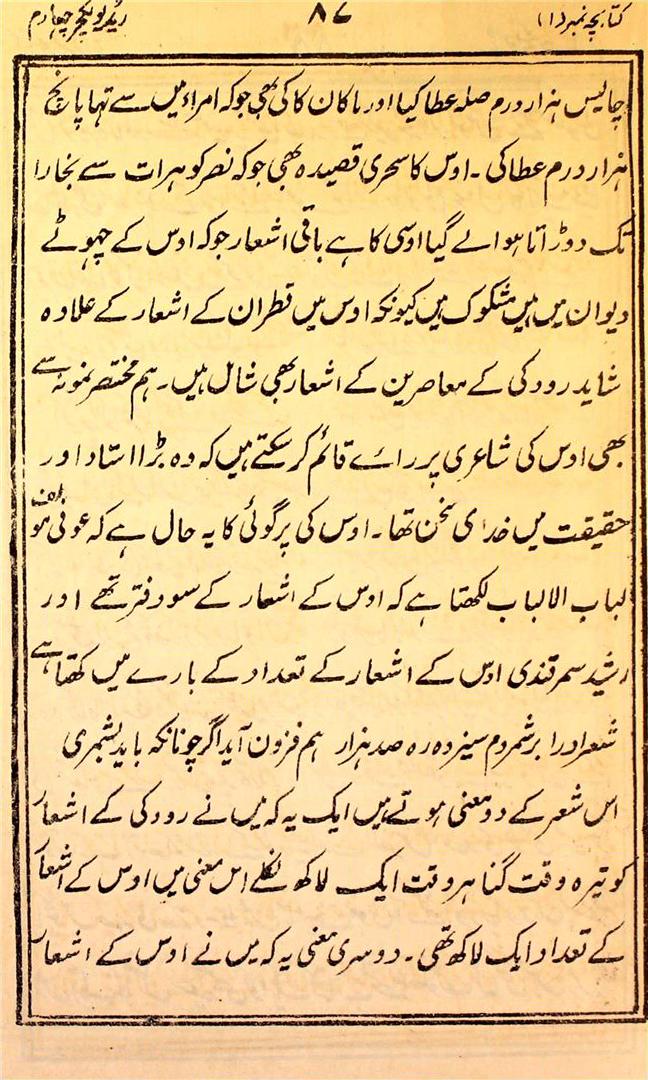 کتابچہ نمبر (۱) ۸۷ ریڈر ویکچر چہارم
چالیس ہزار درم صلہ عطا کیا اور ماکان کاکی بھی جو کہ امراء میں سے تہا پانچ
ہزار درم عطا کی۔ اوس کا سحری قصیدہ بھی جو کہ نصر کو ہرات سے بخارا
تک دوڑاتا ہوا لے گیا اوسی کا ہے باقی اشعار جو کہ اوس کے چہوٹے
دیوان میں ہیں مشکوک ہیں کیونکہ اوس میں قطران کے اشعار کے علاوہ
شاید رودکی کے معاصرین کے اشعار بھی شامل ہیں۔ ہم مختصر نمونہ سے
بھی اوس کی شاعری پر رائے قائم کر سکتے ہیں کہ وہ بڑا استاد اور
حقیقت میں خدای سخن تھا۔ اوس کی پرگوئی کا یہ حال ہے کہ عوفی مولف
لباب الالباب لکھتا ہے کہ اوس کے اشعار کے سو دفتر تھے اور
رشید سمرقندی اوس کے اشعار کے تعداد کے بارے میں کھتا ہے
شعر اورا برشمردم سیزدہ رہ صد ہزار ہم فزون آید اگر چونانکہ باید بشمری
اس شعر کے دو معنی ہوتے ہیں ایک یہ کہ میں نے رودکی کے اشعار
کو تیرہ وقت گنا ہر وقت ایک لاکھ نکلے اس معنی میں اوس کے اشعار
کے تعداد ایک لاکھ تھی۔ دوسری معنی یہ کہ میں نے اوس کے اشعار